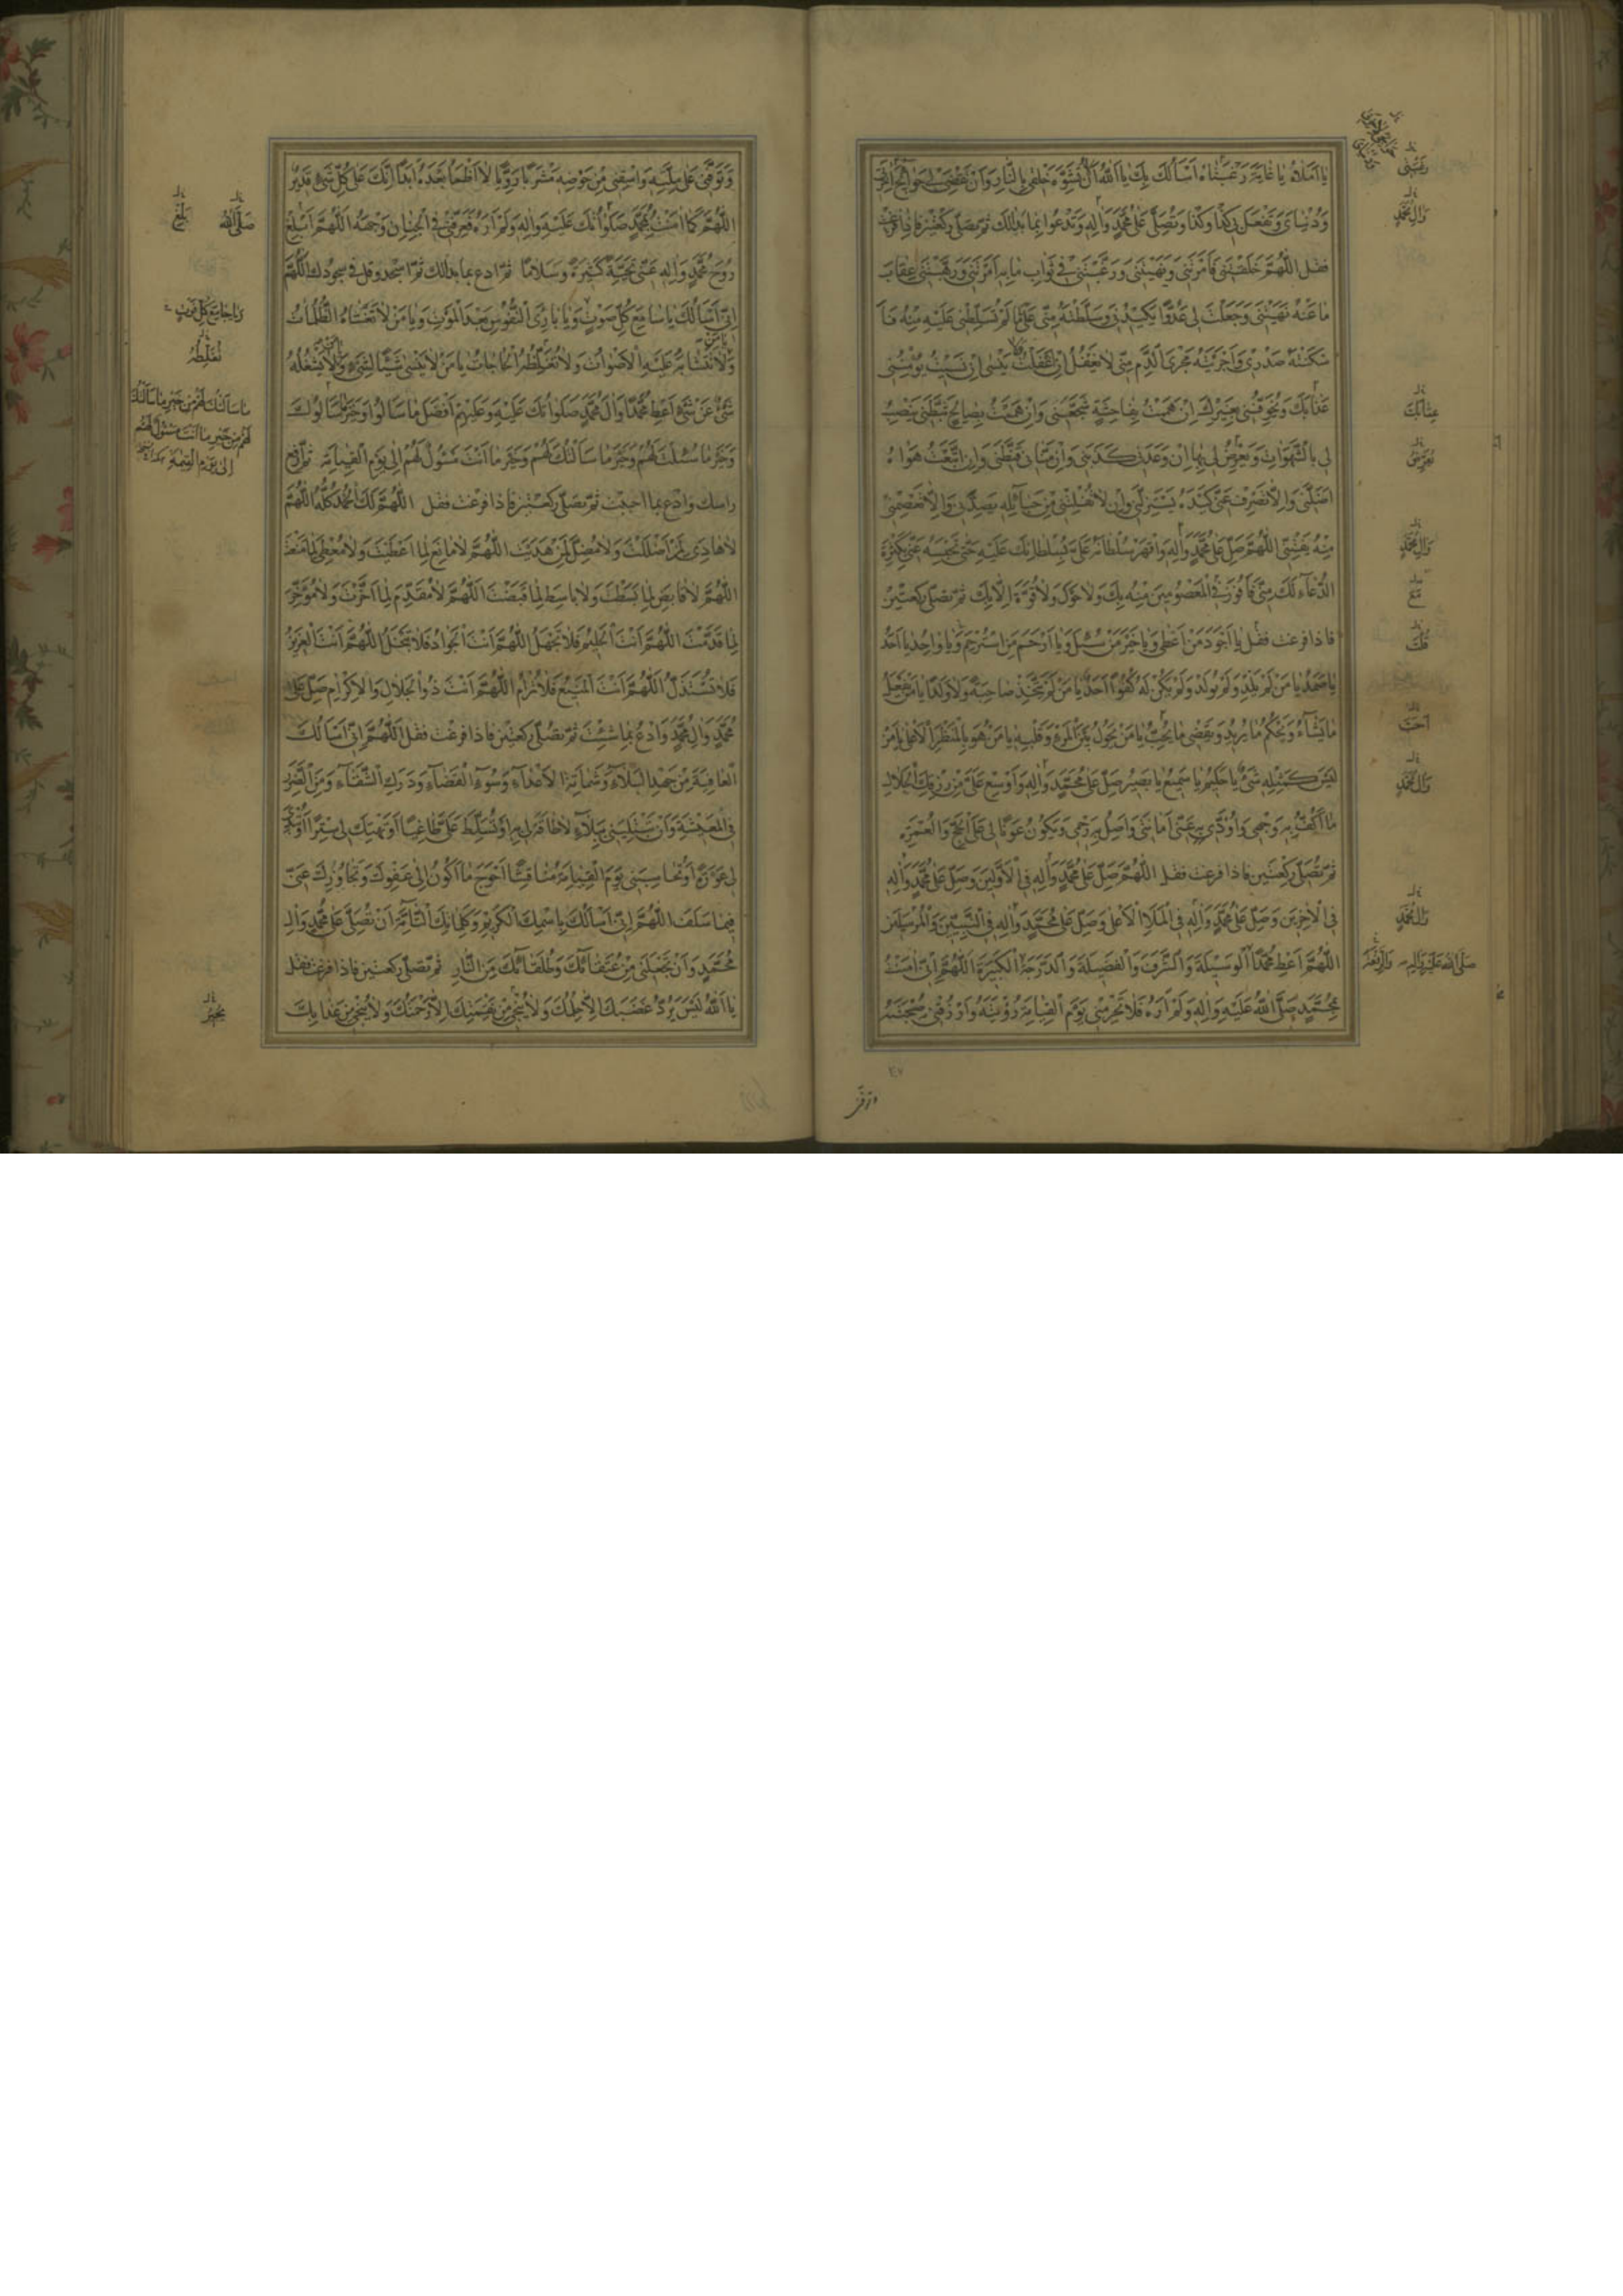 يا أَمَلاهُ يا غايَةَ رَغْبَتاهُ أَسْأَلُكَ بِكَ يا اَللهُ أَنْ لا تُشَوِّهَ خَلْقي بِالنّارِ وَأَنْ تَقْضِيَ لي حَوائِجَ آخِرَتي
وَدُنْيايَ وَتَفْعَلَ بي كَذا وَكَذا وَتُصَلِّيَ عَلى مُحَمَّدٍ وَآلِهِ وَتَدْعُوا بِما بَدا لَكَ ثُمَّ تصلّي ركعتين فاذا فرغت
فقل اللّهُمَّ خَلَقْتَني فَأَمَرْتَني وَنَهَيْتَني وَرَغَّبْتَني في ثَوابِ ما بِهِ أَمَرْتَني وَرَهَّبْتَني عِقابَ
ما عَنْهُ نَهَيْتَني وَجَعَلْتَ لي عَدُوًّا يَكيدُني وَسَلَّطْتَهُ مِنّي عَلى ما لَمْ تُسَلِّطْني عَلَيْهِ مِنْهُ فَأَ
سْكَنْتَهُ صَدْري وَأَجْرَيْتَهُ مَجْرَى الدَّمِ مِنّي لا يَغْفُلُ إِنْ غَفَلْتُ وَلا يَنْسى إِنْ نَسيتُ يُؤْمِنُني
عَذابَكَ وَيُخَوِّفُني بِغَيْرِكَ إِنْ هَمَمْتُ بِفاحِشَةٍ شَجَّعَني وَإِنْ هَمَمْتُ بِصالِحٍ ثَبَّطَني يَنْصِبُ
لي بِالشَّهَواتِ وَيَعْرِضُ لي بِها إِنْ وَعَدَني كَذَبَني وَإِنْ مَنّاني قَنَّطَني وَإِنِ اتَّبَعْتُ هَواهُ
أَضَلَّني وَإِلّا تَصْرِفْ عَنّي كَيْدَهُ يَسْتَزِلَّني وَإِنْ لا تُفْلِتْني مِنْ حَبائِلِهِ يَصُدَّني وَإِلّا تَعْصِمْني
مِنْهُ يَفْتِنّي اللّهُمَّ صَلِّ عَلى مُحَمَّدٍ وَآلِهِ وَاقْهَرْ سُلْطانَهُ عَلَيَّ بِسُلْطانِكَ عَلَيْهِ حَتّى تَحْبِسَهُ عَنّي بِكَثْرَةِ
الدُّعاءِ لَكَ مِنّي فَأَفُوزَ فِي الْمَعْصُومينَ مِنْهُ بِكَ وَلا حَوْلَ وَلا قُوَّةَ إِلّا بِكَ ثمّ تصلّي ركعتين
فاذا فرغت فقل يا أَجْوَدَ مَنْ أَعْطى وَيا خَيْرَ مَنْ سُئِلَ وَيا أَرْحَمَ مَنِ اسْتُرْحِمَ وَيا واحِدُ يا أَحَدُ
يا صَمَدُ يا مَنْ لَمْ يَلِدْ وَلَمْ يُولَدْ وَلَمْ يَكُنْ لَهُ كُفُوًا أَحَدٌ يا مَنْ لَمْ يَتَّخِذْ صاحِبَةً وَلا وَلَدًا يا مَنْ يَفْعَلُ
ما يَشاءُ وَيَحْكُمُ ما يُريدُ وَيَقْضي ما يُحِبُّ يا مَنْ يَحُولُ بَيْنَ الْمَرْءِ وَقَلْبِهِ يا مَنْ هُوَ بِالْمَنْظَرِ الْأَعْلى يا مَنْ
لَيْسَ كَمِثْلِهِ شَيْءٌ يا حَكيمُ يا سَميعُ يا بَصيرُ صَلِّ عَلى مُحَمَّدٍ وَآلِهِ وَأَوْسِعْ عَلَيَّ مِنْ رِزْقِكَ الْحَلالِ
ما أَكُفُّ بِهِ وَجْهي وَأُؤَدّي بِهِ عَنّي أَمانَتي وَأَصِلُ بِهِ رَحِمي وَيَكُونُ عَوْنًا لي عَلَى الْحَجِّ وَالْعُمْرَةِ
ثمّ تُصَلّي ركعتين فاذا فرغت فقل اللّهُمَّ صَلِّ عَلى مُحَمَّدٍ وَآلِهِ فِي الْأَوَّلينَ وَصَلِّ عَلى مُحَمَّدٍ وَآلِهِ
فِي الْآخِرينَ وَصَلِّ عَلى مُحَمَّدٍ وَآلِهِ فِي الْمَلَإِ الْأَعْلى وَصَلِّ عَلى مُحَمَّدٍ وَآلِهِ فِي النَّبِيّينَ وَالْمُرْسَلينَ
اللّهُمَّ أَعْطِ مُحَمَّدًا الْوَسيلَةَ وَالشَّرَفَ وَالْفَضيلَةَ وَالدَّرَجَةَ الْكَبيرَةَ اللّهُمَّ إِنّي آمَنْتُ
بِمُحَمَّدٍ صَلَّى اللهُ عَلَيْهِ وَآلِهِ وَلَمْ أَرَهُ فَلا تَحْرِمْني يَوْمَ الْقِيامَةِ رُؤْيَتَهُ وَارْزُقْني صُحْبَتَهُ
رَغْبَتي
وَآلِ مُحَمَّدٍ
عِقابَكَ
يُعَرِّضُ
وَآلِ مُحَمَّدٍ
مَعَ
أَحَبَّ
وَآلِ مُحَمَّدٍ
وَآلِ مُحَمَّدٍ
صلّى الله عليه وآله
وتوفّني
وَتَوَفَّني عَلى مِلَّتِهِ وَاسْقِني مِنْ حَوْضِهِ مَشْرَبًا رَوِيًّا لا أَظْمَأُ بَعْدَهُ أَبَدًا إِنَّكَ عَلى كُلِّ شَيْءٍ قَديرٌ
اللّهُمَّ كَما آمَنْتُ بِمُحَمَّدٍ صَلَواتُكَ عَلَيْهِ وَآلِهِ وَلَمْ أَرَهُ فَعَرِّفْني فِي الْجِنانِ وَجْهَهُ اللّهُمَّ أَبْلِغْ
رُوحَ مُحَمَّدٍ وَآلِهِ عَنّي تَحِيَّةً كَثيرَةً وَسَلامًا ثمّ ادع بما بدا لك ثمّ اسجد وقل في سجودك اللّهُمَّ
إِنّي أَسْأَلُكَ يا سامِعَ كُلِّ صَوْتٍ وَيا بارِئَ النُّفُوسِ بَعْدَ الْمَوْتِ وَيا مَنْ لا تَغْشاهُ الظُّلُماتُ
وَلا تَتَشابَهُ عَلَيْهِ الْأَصْواتُ وَلا تُغَلِّطُهُ الْحاجاتُ يا مَنْ لا يَنْسى شَيْئًا لِشَيْءٍ وَلا يَشْغَلُهُ
شَيْءٌ عَنْ شَيْءٍ أَعْطِ مُحَمَّدًا وَآلَ مُحَمَّدٍ صَلَواتُكَ عَلَيْهِ وَعَلَيْهِمْ أَفْضَلَ ما سَأَلُوا وَخَيْرَ ما سَأَلُوكَ
وَخَيْرَ ما سُئِلْتَ لَهُمْ وَخَيْرَ ما سَأَلْتُكَ لَهُمْ وَخَيْرَ ما أَنْتَ مَسْئُولٌ لَهُمْ إِلى يَوْمِ الْقِيامَةِ ثمّ ارفع
راسك وادع بما احببت ثمّ تصلّي ركعتين فاذا فرغت فقل اللّهُمَّ لَكَ الْحَمْدُ كُلُّهُ اللّهُمَّ
لا هادِيَ لِمَنْ أَضْلَلْتَ وَلا مُضِلَّ لِمَنْ هَدَيْتَ اللّهُمَّ لا مانِعَ لِما أَعْطَيْتَ وَلا مُعْطِيَ لِما مَنَعْتَ
اللّهُمَّ لا قابِضَ لِما بَسَطْتَ وَلا باسِطَ لِما قَبَضْتَ اللّهُمَّ لا مُقَدِّمَ لِما أَخَّرْتَ وَلا مُؤَخِّرَ
لِما قَدَّمْتَ اللّهُمَّ أَنْتَ الْحَليمُ فَلا تَجْهَلُ اللّهُمَّ أَنْتَ الْجَوادُ فَلا تَبْخَلُ اللّهُمَّ أَنْتَ الْعَزيزُ
فَلا تُسْتَذَلُّ اللّهُمَّ أَنْتَ الْمَنيعُ فَلا تُرامُ اللّهُمَّ أَنْتَ ذُو الْجَلالِ وَالْإِكْرامِ صَلِّ عَلى
مُحَمَّدٍ وَآلِ مُحَمَّدٍ وَادْعُ بِما شِئْتَ ثمّ تصلّي ركعتين فاذا فرغت فقل اَللّهُمَّ إِنّي أَسْأَلُكَ
الْعافِيَةَ مِنْ جَهْدِ الْبَلاءِ وَشَماتَةِ الْأَعْداءِ وَسُوءِ الْقَضاءِ وَدَرَكِ الشَّقاءِ وَمِنَ الضَّرَرِ
فِي الْمَعيشَةِ وَأَنْ تَبْتَلِيَني بِبَلاءٍ لا طاقَةَ لي بِهِ أَوْ تُسَلِّطَ عَلَيَّ طاغِيًا أَوْ تَهْتِكَ لي سِتْرًا أَوْ تُبْدِيَ
لي عَوْرَةً أَوْ تُحاسِبَني يَوْمَ الْقِيامَةِ مُناقِشًا أَحْوَجَ ما أَكُونُ إِلى عَفْوِكَ وَتَجاوُزِكَ عَنّي
فيما سَلَفَ اللّهُمَّ إِنّي أَسْأَلُكَ بِاسْمِكَ الْكَريمِ وَكَلِماتِكَ التّامَّةِ أَنْ تُصَلِّيَ عَلى مُحَمَّدٍ وَآلِ
مُحَمَّدٍ وَأَنْ تَجْعَلَني مِنْ عُتَقائِكَ وَطُلَقائِكَ مِنَ النّارِ ثمّ تصلّي ركعتين فاذا فرغت فقل
يا اَللهُ لَيْسَ يَرُدُّ غَضَبَكَ إِلّا حِلْمُكَ وَلا يُنْجي مِنْ نِقْمَتِكَ إِلّا رَحْمَتُكَ وَلا يُنْجي مِنْ عَذابِكَ
صَلَّى اللهُ
بَلِّغْ
وَيا جامِعَ كُلِّ فَوْتٍ
تُغَلِّطُهُ
ما سَأَلْتُكَ لَهُمْ مِنْ خَيْرِ ما سَأَلَكَ
لَهُمْ مِنْ خَيْرِ ما أَنْتَ مَسْئُولٌ لَهُمْ
إِلى يَوْمِ الْقِيمَةِ
يُجيرُ